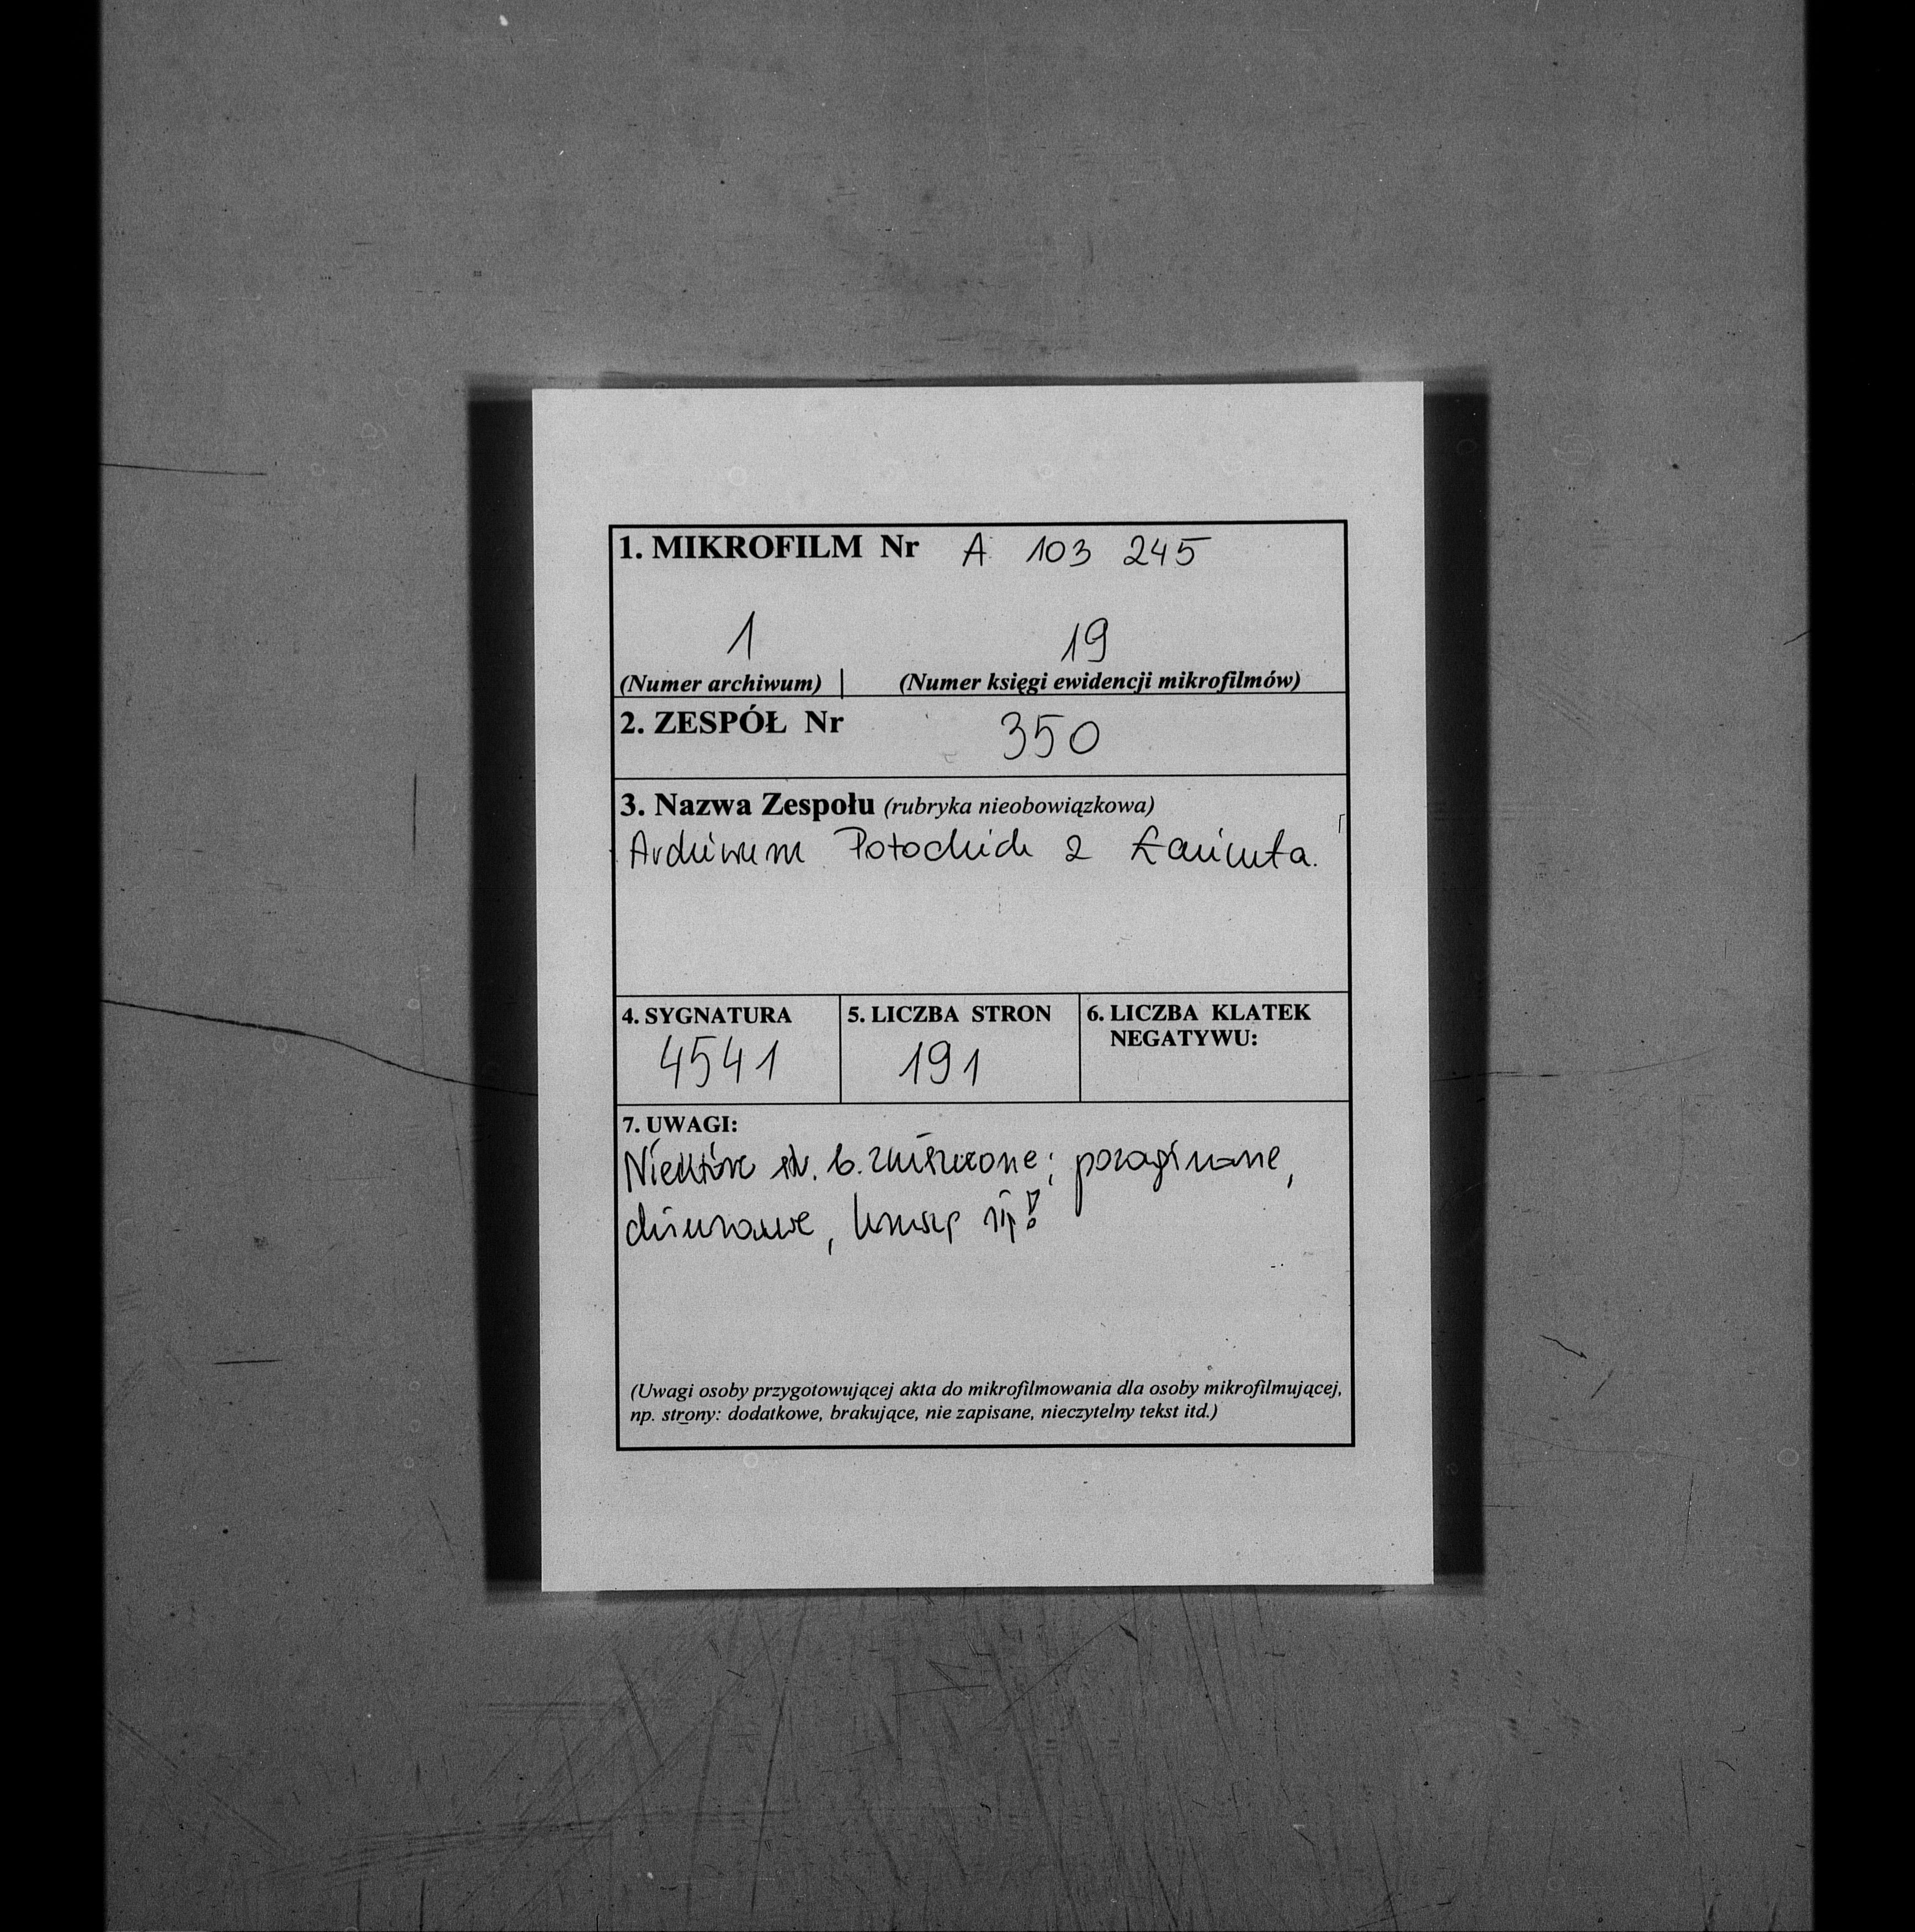 1. MIKROFILM Nr A 103 245
1 19
(Numer archiwum) (Numer księgi ewidencji mikrofilmów)
2. ZESPÓŁ Nr 350
3. Nazwa Zespołu (rubryka nieobowiązkowa)
Archiwum Potockich z Łańcuta.
4. SYGNATURA 5. LICZBA STRON 6. LICZBA KLATEK
NEGATYWU:
4541 191
7. UWAGI:
Niektóre str. b. zniszczone; pozaginane,
dziurawe, kruszą się!
(Uwagi osoby przygotowującej akta do mikrofilmowania dla osoby mikrofilmującej,
np. strony: dodatkowe, brakujące, nie zapisane, nieczytelny tekst itd.)